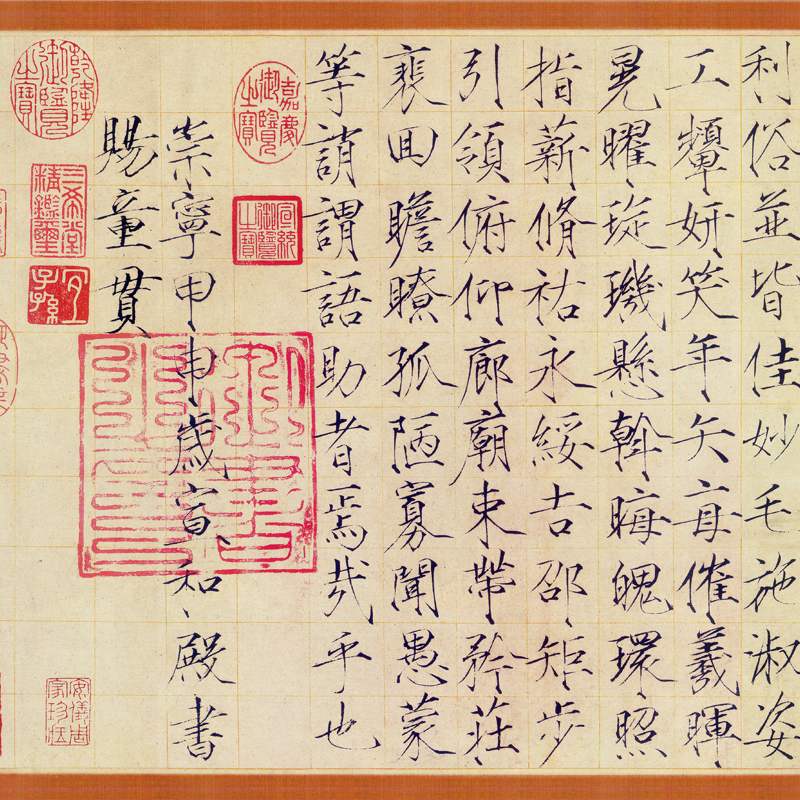 利俗並皆佳妙毛施淑姿
工顰妍笑年矢每催羲暉
晃曜琁璣懸斡晦魄環照
指薪脩祐永綏吉邵矩步
引領俯仰廊廟束帶矜莊
裵回瞻瞭孤陋寡聞愚蒙
等誚謂語助者焉哉乎也
嘉慶御覽之寶
宣統御覽之寶
崇寧甲申歲宣和殿書
賜童貫
乾隆御覽之寶
三希堂精鑑璽
宜子孫
安儀周家珍藏